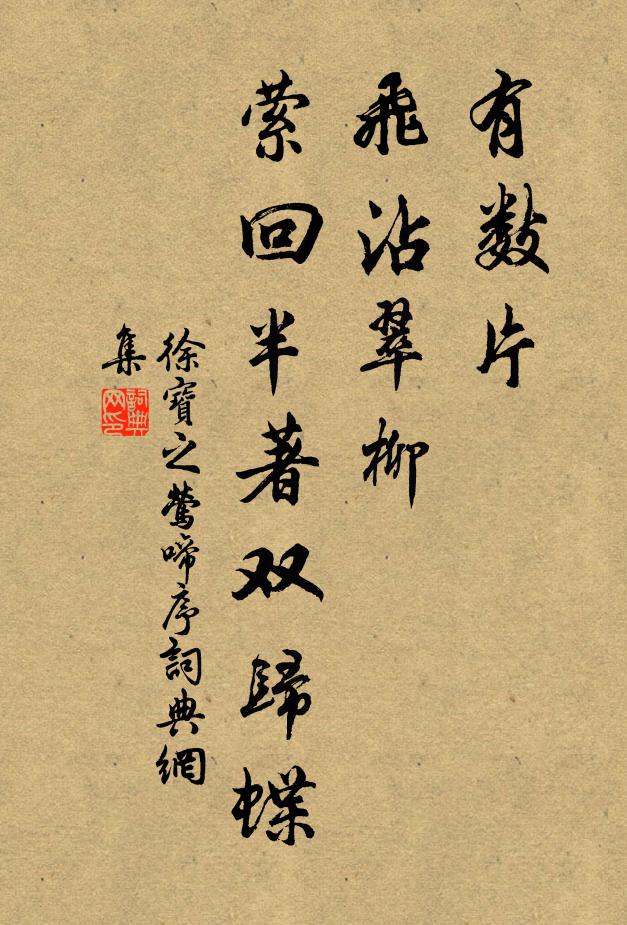 有数片
飛沾翠柳
萦回半著双歸蝶
徐寶之鶯啼序詞典網
集
詞典
网印